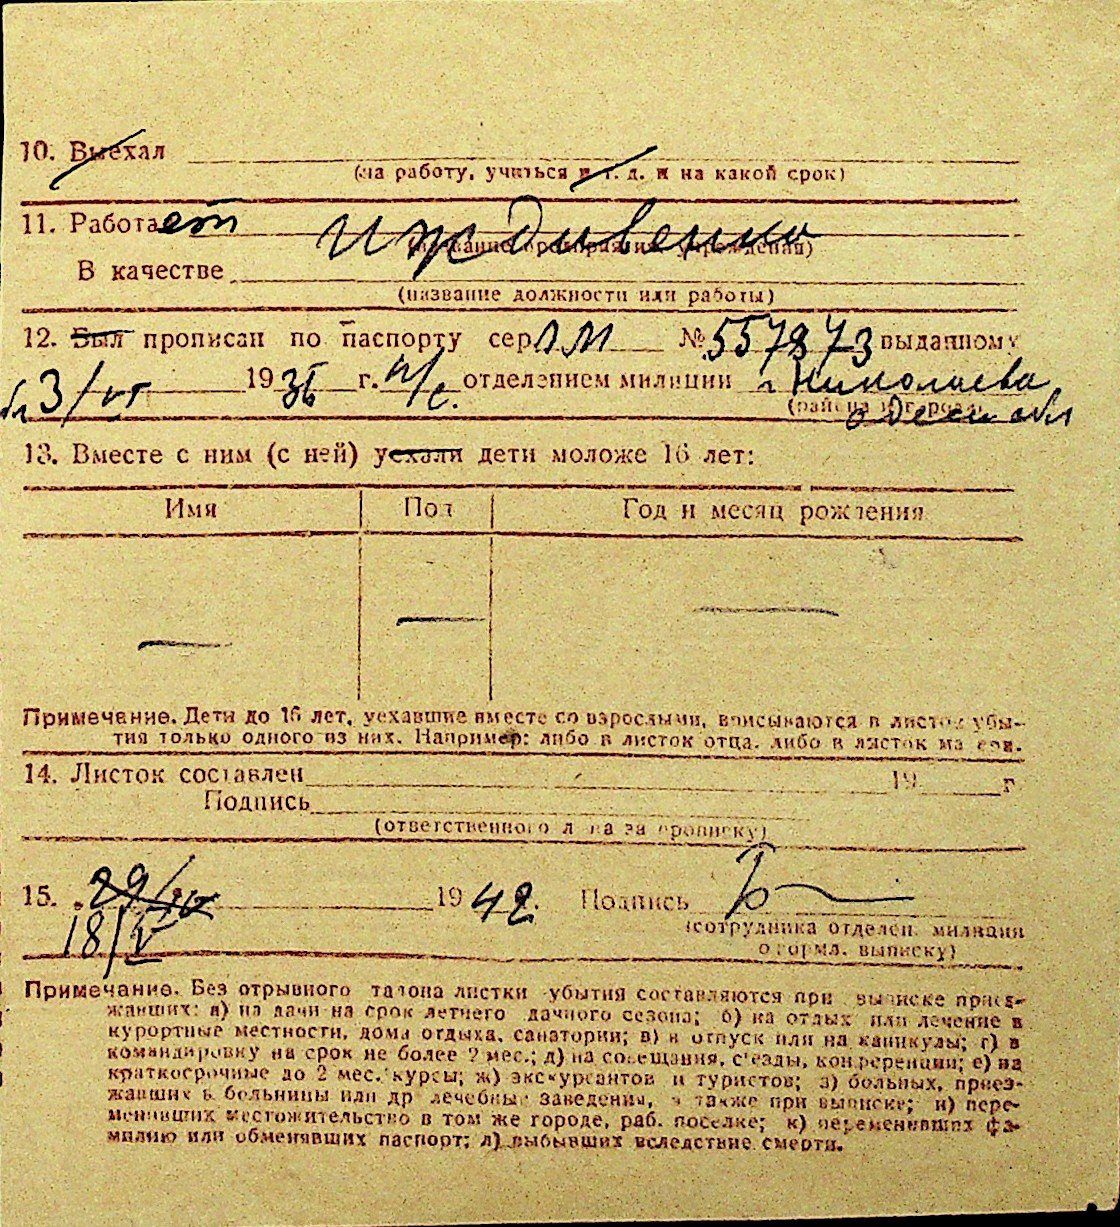 10. Выехал
(на работу, учиться и т. д. и на какой срок)
11. Работает иждивенка
(название предприятия, учреждения)
В качестве
(название должности или работы)
12. Был прописан по паспорту сер. ЛМ № 557873 выданному
3/VI 1936 г. н/с. отделением милиции г. Николаева
(района и города) Одесс обл
13. Вместе с ним (с ней) уехали дети моложе 16 лет:
Имя Пол Год и месяц рождения
— — —
Примечание. Дети до 16 лет, уехавшие вместе со взрослыми, вписываются в листок убы-
тия только одного из них. Например: либо в листок отца, либо в листок матери.
14. Листок составлен 19 г
Подпись
(ответственного лица за прописку)
15. 29/IV 1942. Подпись
18/V (сотрудника отделен. милиции
оформл. выписку)
Примечание. Без отрывного талона листки убытия составляются при выписке приез-
жавших: а) на дачи на срок летнего дачного сезона; б) на отдых или лечение в
курортные местности, дома отдыха, санатории; в) в отпуск или на каникулы; г) в
командировку на срок не более 2 мес.; д) на совещания, съезды, конференции; е) на
краткосрочные до 2 мес. курсы; ж) экскурсантов и туристов; з) больных, приез-
жавших в больницы или др лечебные заведения, а также при выписке; и) пере-
менивших местожительство в том же городе, раб. поселке; к) переменивших фа-
милию или обменявших паспорт; л) выбывших вследствие смерти.